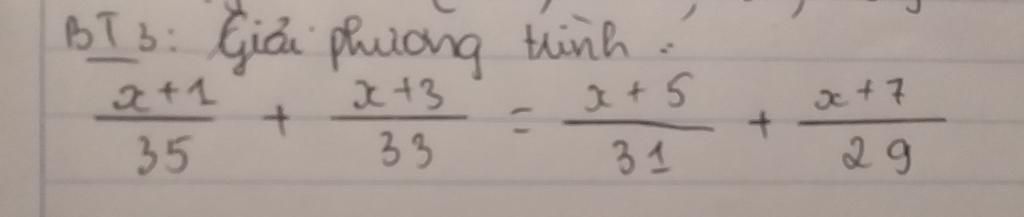 BT3: Giải phương trình:
x+1/35 + x+3/33 = x+5/31 + x+7/29